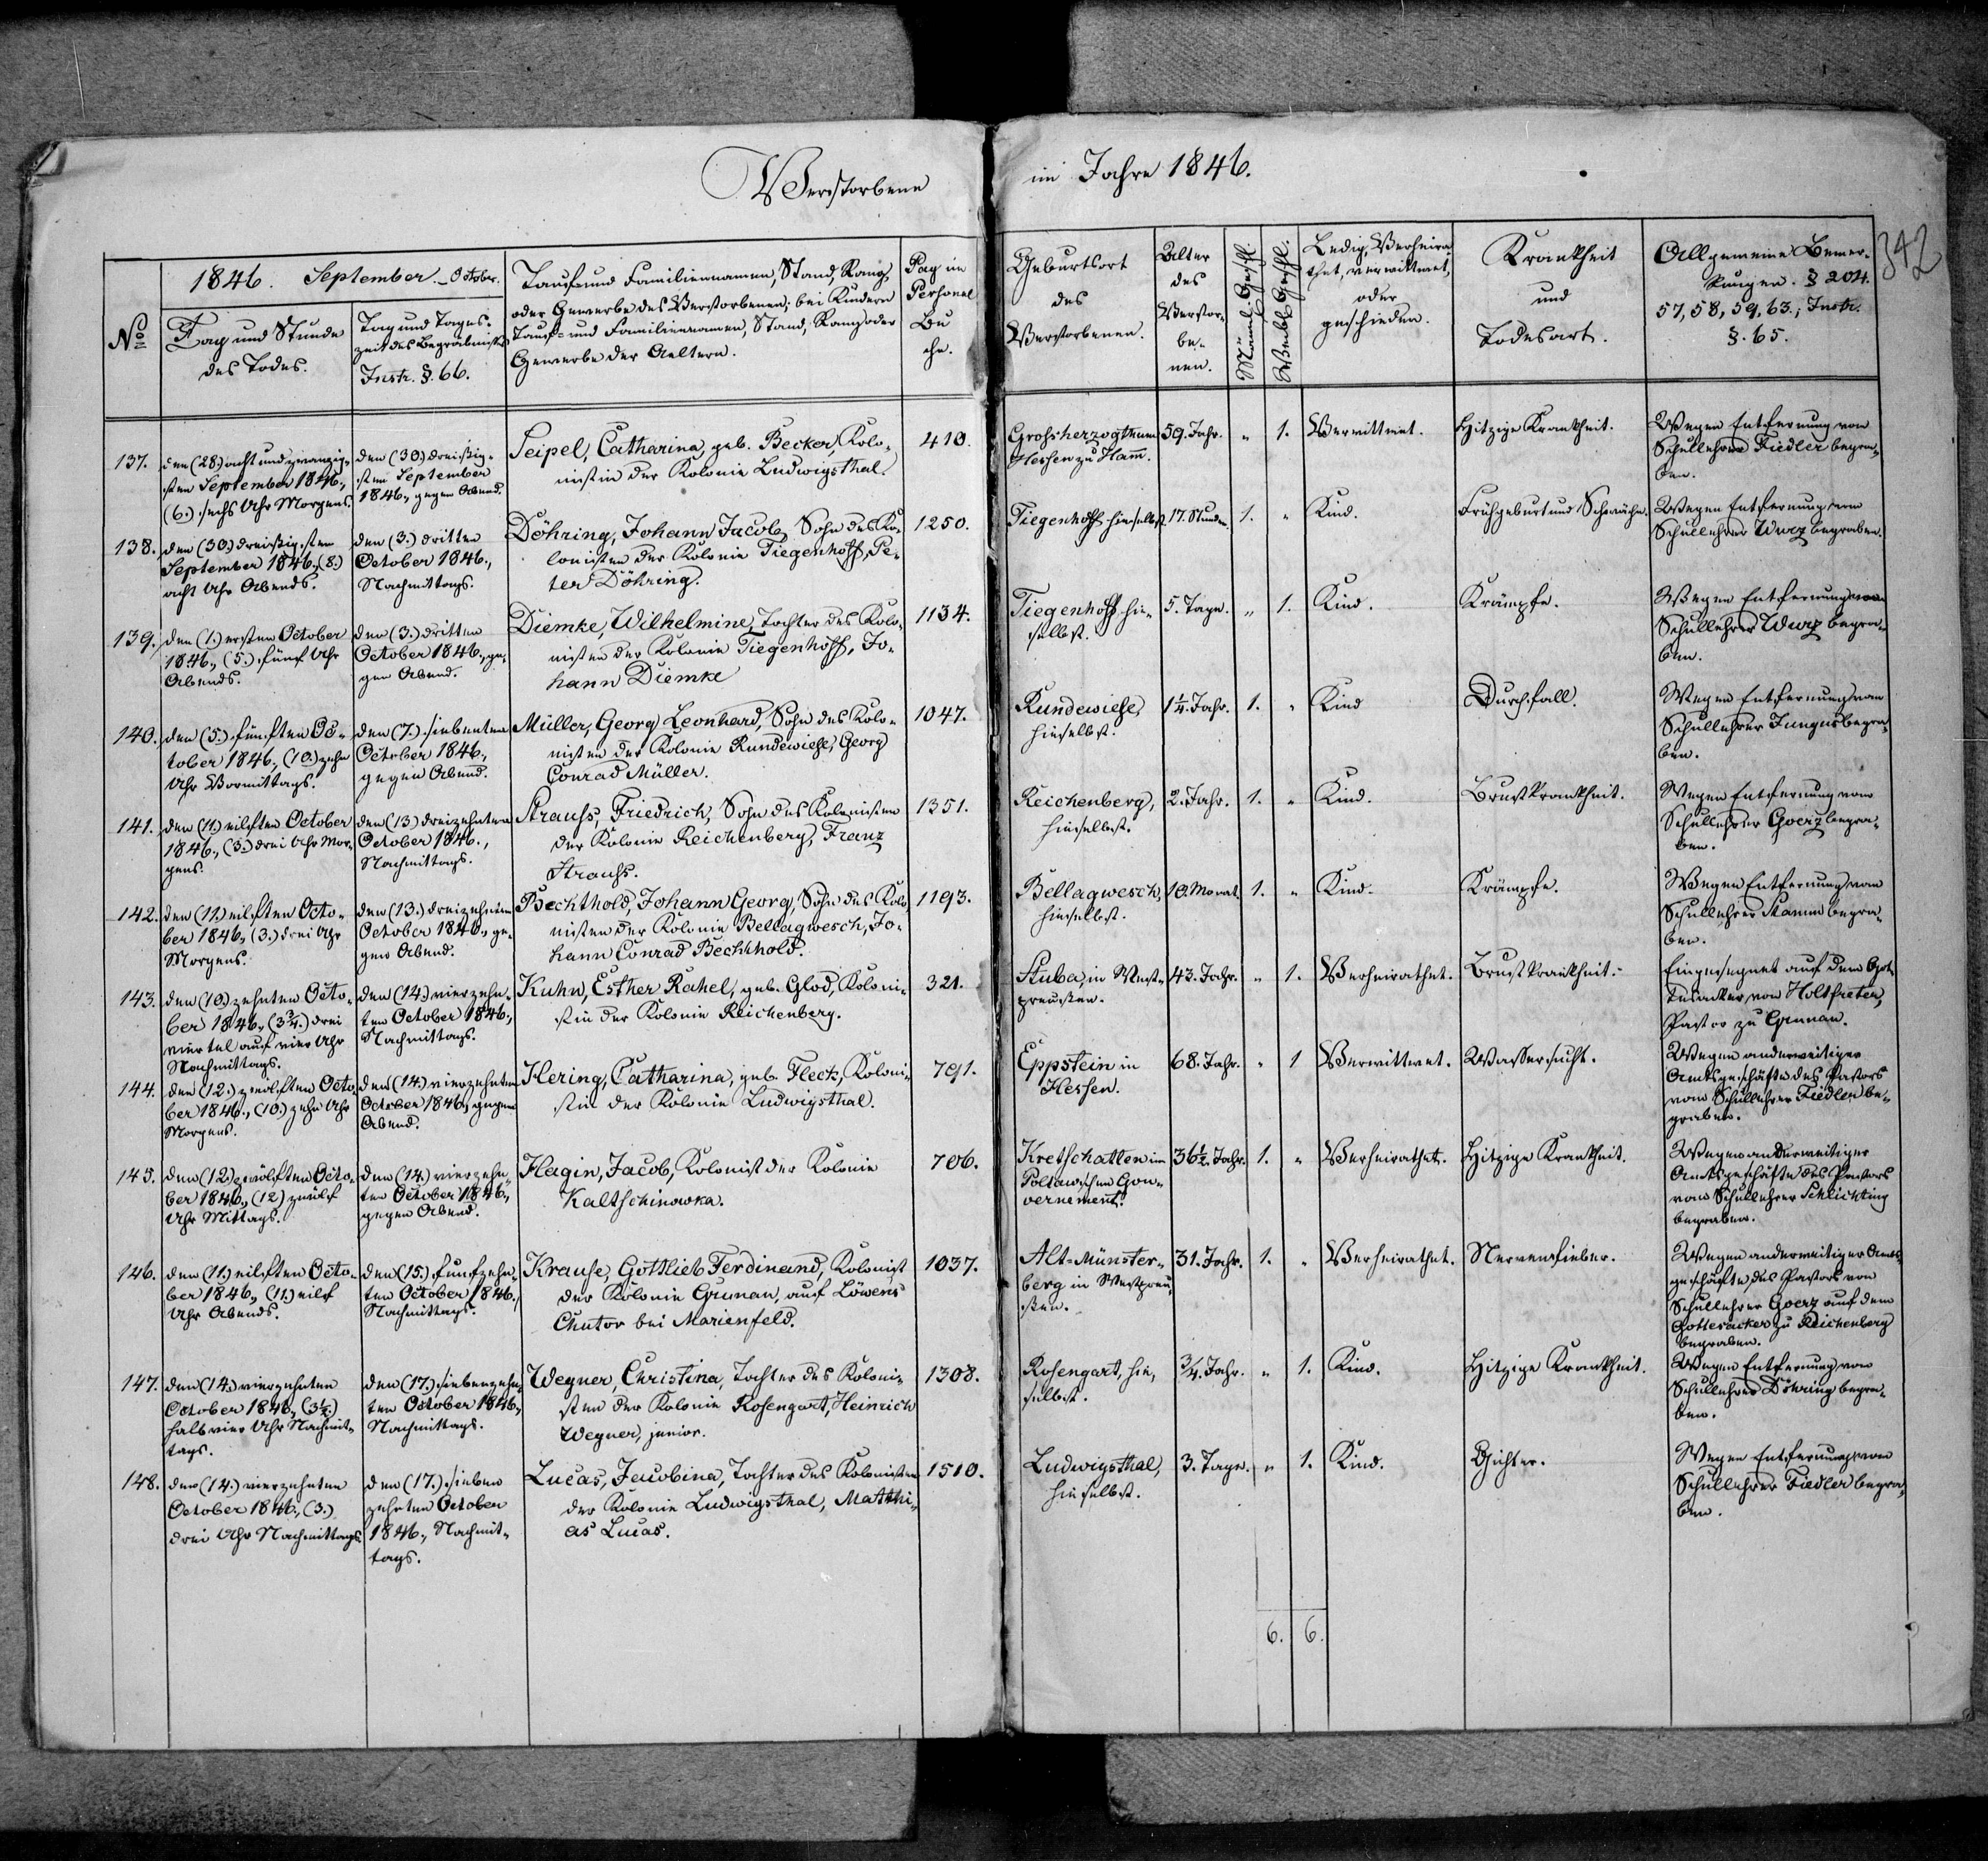 Verstorbene
im Jahre 1846.
342
1846. September - October.
No
Tag und Stunde
des Todes.
Tag und Tages-
zeit des Begräbnisses
Instr. §. 66.
Tauf- und Familiennamen, Stand, Rang,
oder Gewerbe des Verstorbenen; bei Kindern
Tauf- und Familiennamen, Stand, Rang oder
Gewerbe der Aeltern.
Pag im
Personal
Bu
che.
Geburtsort
des
Verstorbenen.
Alter
des
Verstor-
be-
nen.
Männl. Geschl.
Weibl. Geschl.
Ledig, Verheira-
thet, verwittwet,
oder
geschieden.
Krankheit
und
Todesart.
Allgemeine Bemer-
kungen. § 204.
57, 58, 59, 63.; Instr.
§. 65.
137.
den (28.) acht und zwanzig-
sten September 1846.,
(6.) sechs Uhr Morgens.
den (30.) dreißig-
sten September
1846., gegen Abend.
Seipel, Catharina, geb. Becker, Kolo-
nistin der Kolonie Ludwigsthal.
410.
Grossherzogthum
Hessen zu Hamm.
59. Jahr.
" 1.
Verwittwet.
Hitzige Krankheit.
Wegen Entfernung vom
Schullehrer Fiedler begra-
ben.
138.
den (30.) dreißigsten
September 1846., (8.)
acht Uhr Abends.
den (3.) dritten
October 1846.,
Nachmittags.
Döhring, Johann Jacob, Sohn des Ko-
lonisten der Kolonie Tiegenhoff, Pe-
ter Döhring.
1250.
Tiegenhoff hieselbst.
17. Stunden.
1. "
Kind.
Frühgeburt und Schwäche.
Wegen Entfernung vom
Schullehrer Wurz begraben.
139.
den (1.) ersten October
1846., (5.) fünf Uhr
Abends.
den (3.) dritten
October 1846., ge-
gen Abend.
Diemke, Wilhelmine, Tochter des Kolo-
nisten der Kolonie Tiegenhoff, Jo-
hann Diemke
1134.
Tiegenhoff hie-
selbst.
5. Tage.
" 1.
Kind.
Krämpfe.
Wegen Entfernung vom
Schullehrer Wurz begra-
ben.
140.
den (5.) fünften Oc-
tober 1846., (10.) zehn
Uhr Vormittags.
den (7.) siebenten
October 1846.,
gegen Abend.
Müller, Georg Leonhard, Sohn des Kolo-
nisten der Kolonie Rundewiese, Georg
Conrad Müller.
1047.
Rundewiese,
hieselbst.
1¼. Jahr.
1. "
Kind
Durchfall.
Wegen Entfernung vom
Schullehrer Jungus begra-
ben.
141.
den (11.) eilften October
1846., (3.) drei Uhr Mor-
gens.
den (13.) dreizehnten
October 1846.,
Nachmittags.
Strauss, Friedrich, Sohn des Kolonisten
der Kolonie Reichenberg, Franz
Strauss.
1351.
Reichenberg,
hieselbst.
2. Jahr.
1. "
Kind.
Brustkrankheit.
Wegen Entfernung vom
Schullehrer Goerz begra-
ben.
142.
den (11.) eilften Octo-
ber 1846., (3.) drei Uhr
Morgens.
den (13.) dreizehnten
October 1846., ge-
gen Abend.
Bechthold, Johann Georg, Sohn des Kolo-
nisten der Kolonie Bellagwesch, Jo-
hann Conrad Bechthold.
1193.
Bellagwesch,
hieselbst.
10. Monat.
1. "
Kind.
Krämpfe.
Wegen Entfernung vom
Schullehrer Stamm begra-
ben.
143.
den (10.) zehnten Octo-
ber 1846., (3¾.) drei
viertel auf vier Uhr
Nachmittags.
den (14.) vierzehn-
ten October 1846.,
Nachmittags.
Kuhn, Esther Rahel, geb. Glod, Koloni-
stin der Kolonie Reichenberg.
321.
Stuba, in West-
preußen.
43. Jahr.
" 1.
Verheirathet.
Brustkrankheit.
Eingesegnet auf dem Got-
tesacker von Holtfreter,
Pastor zu Grunau.
144.
den (12.) zwölften Octo-
ber 1846., (10.) zehn Uhr
Morgens.
den (14.) vierzehnten
October 1846., gegen
Abend.
Hering, Catharina, geb. Fleck, Koloni-
stin der Kolonie Ludwigsthal.
791.
Eppstein in
Hessen.
68. Jahr.
" 1
Verwittwet.
Wassersucht.
Wegen anderweitiger
Amtsgeschäfte des Pastors
vom Schullehrer Fiedler be-
graben.
145.
den (12.) zwölften Octo-
ber 1846., (12.) zwölf
Uhr Mittags.
den (14.) vierzehn-
ten October 1846.,
gegen Abend.
Hagin, Jacob, Kolonist der Kolonie
Kaltschinowka.
706.
Kretschatten im
Poltawschen Gou-
vernement.
36½. Jahr.
1. "
Verheirathet.
Hitzige Krankheit.
Wegen anderweitiger
Amtsgeschäfte des Pastors
vom Schullehrer Schlichting
begraben.
146.
den (11.) eilften Octo-
ber 1846., (11.) eilf
Uhr Abends.
den (15.) funfzehn-
ten October 1846.,
Nachmittags.
Krause, Gottlieb Ferdinand, Kolonist
der Kolonie Grunau, auf Löwens
Chutor bei Marienfeld.
1037.
Alt-Münster-
berg in Westpreu-
ßen.
31. Jahr.
1. "
Verheirathet.
Nervenfieber.
Wegen anderweitiger Amts-
geschäfte des Pastors von
Schullehrer Goerz auf dem
Gottesacker zu Reichenberg
begraben.
147.
den (14.) vierzehnten
October 1846., (3½.)
halb vier Uhr Nachmit-
tags.
den (17.) siebenzehn-
ten October 1846.,
Nachmittags.
Wegner, Christina, Tochter des Koloni-
sten der Kolonie Rosengart, Heinrich
Wegner, junior.
1308.
Rosengart, hie-
selbst.
¾. Jahr.
" 1.
Kind.
Hitzige Krankheit.
Wegen Entfernung vom
Schullehrer Döhring begra-
ben.
148.
den (14.) vierzehnten
October 1846., (3.)
drei Uhr Nachmittags.
den (17.) sieben
zehnten October
1846., Nachmit-
tags.
Lucas, Jacobina, Tochter des Kolonisten
der Kolonie Ludwigsthal, Matthi-
as Lucas.
1510.
Ludwigsthal,
hieselbst.
3. Tage.
" 1.
Kind.
Gichter.
Wegen Entfernung vom
Schullehrer Fiedler begra-
ben.
6. 6.